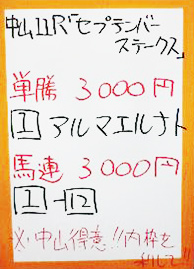 中山11R「セプテンバー
ステークス」
単勝 3000円
1 アルマエルナト
馬連 3000円
1-12
※中山得意!!内枠を
利して!!